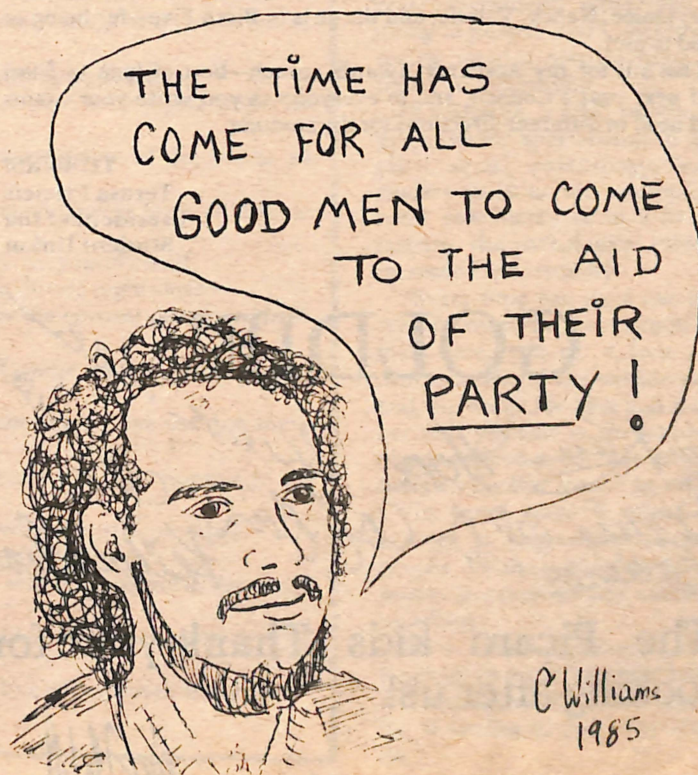 THE TIME HAS
COME FOR ALL
GOOD MEN TO COME
TO THE AID
OF THEIR
PARTY!
C Williams
1985